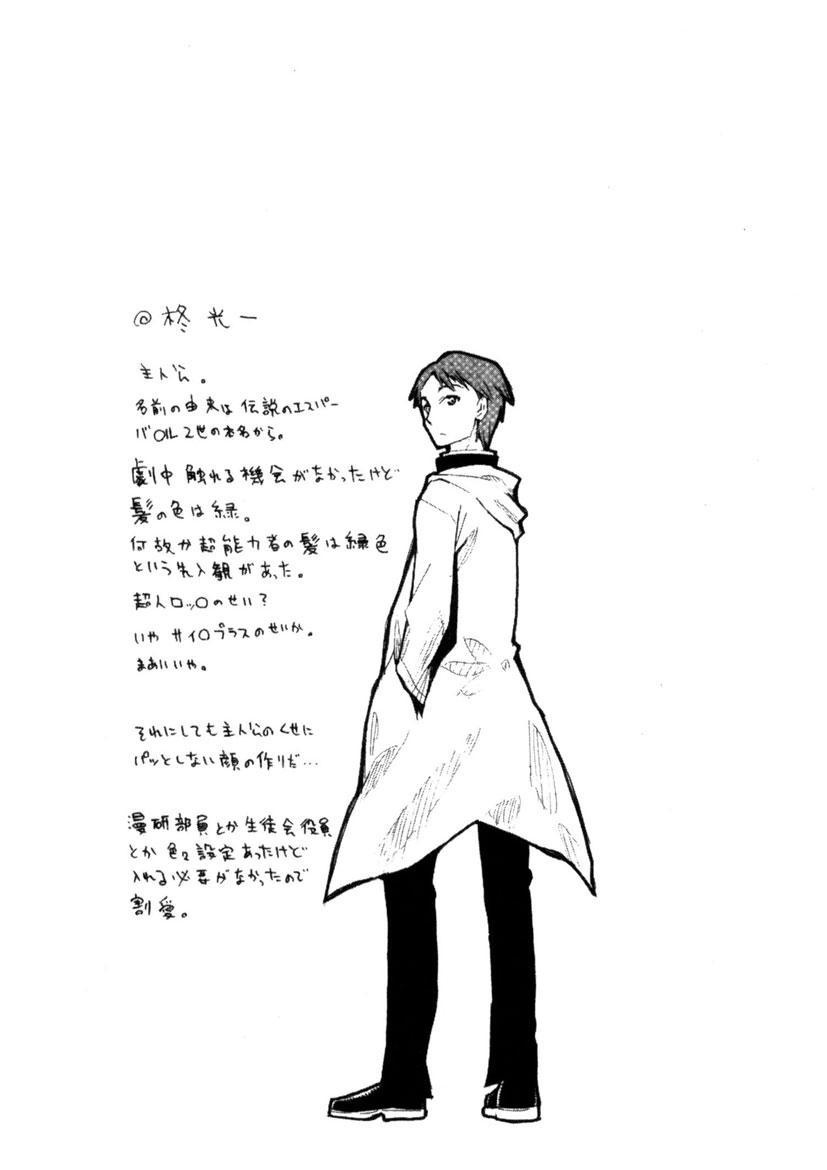 @柊光一
主人公。
名前の由来は伝説のエスパー
バOル2世の本名から。
劇中触れる機会がなかったけど
髪の色は緑。
何故か超能力者の髪は緑色
という先入観があった。
超人ロッOのせい?
いやサイOプラスのせいか。
まあいいや。
それにしても主人公のくせに
パッとしない顔の作りだ…
漫研部員とか生徒会役員
とか色々設定あったけど
入れる必要がなかったので
割愛。